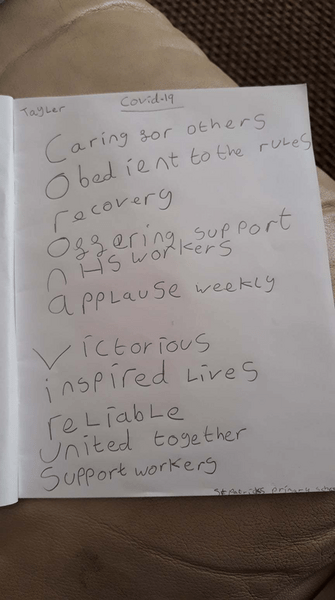 Tayler
Covid-19
Caring for others
Obedient to the rules
recovery
Offering support
nHS workers
applause weekly
Victorious
inspired lives
reliable
united together
Support workers
primary